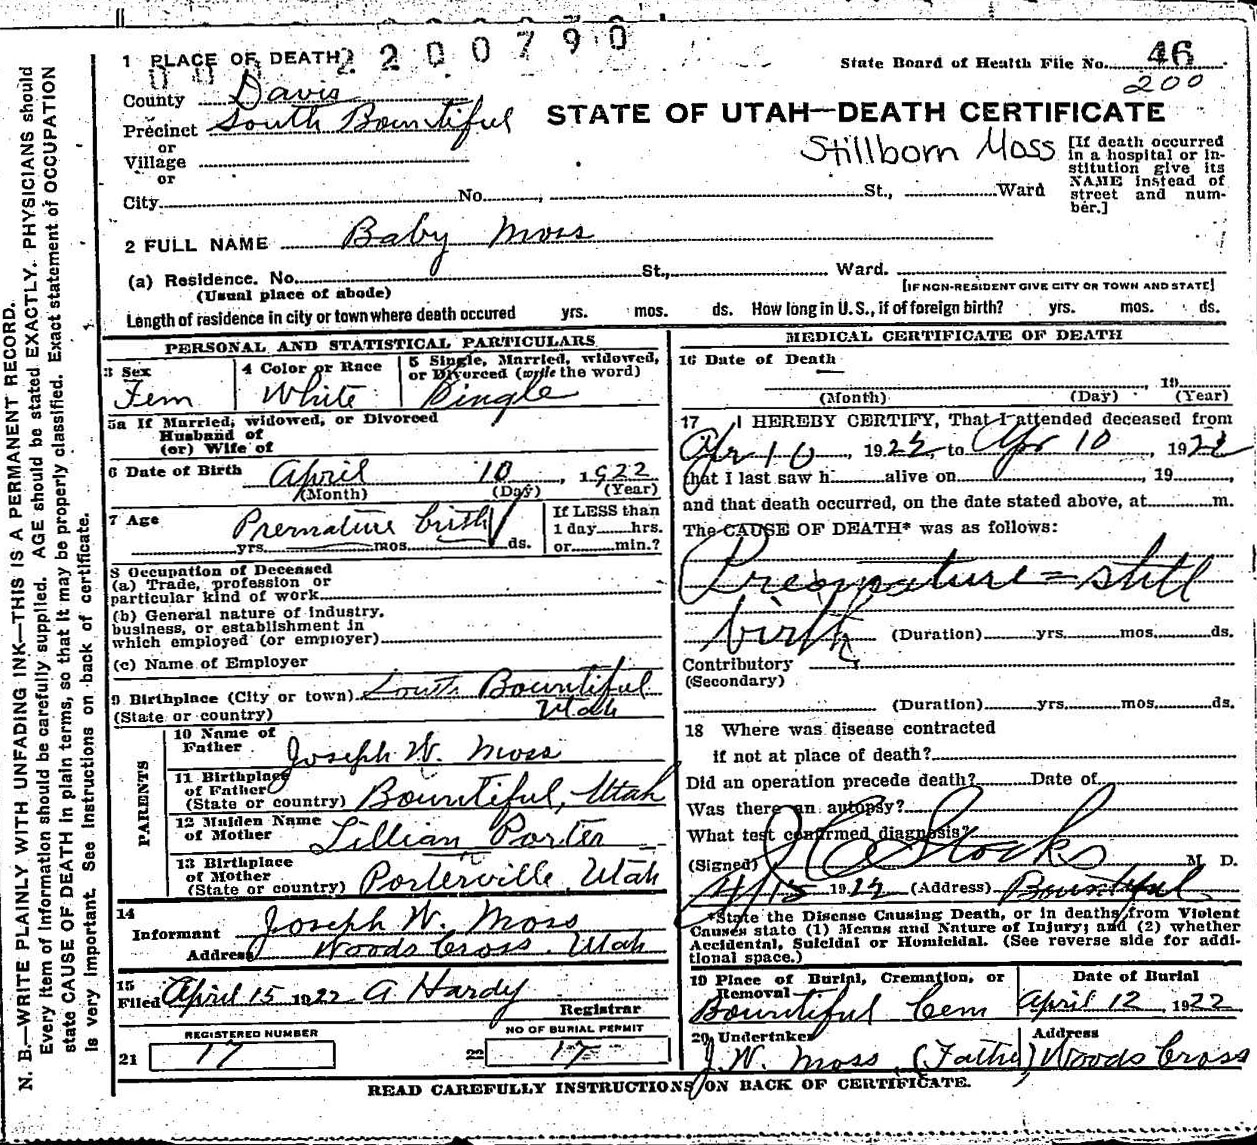 2200790
1 PLACE OF DEATH
State Board of Health File No. 46
200
County Davis
STATE OF UTAH—DEATH CERTIFICATE
Precinct South Bountiful
or
Village
or
Stillborn Moss
[If death occurred in a hospital or institution give its NAME instead of street and number.]
City No. , St., Ward
2 FULL NAME Baby Moss
(a) Residence. No. St., Ward.
(Usual place of abode)
[IF NON-RESIDENT GIVE CITY OR TOWN AND STATE]
Length of residence in city or town where death occured yrs. mos. ds. How long in U.S., if of foreign birth? yrs. mos. ds.
PERSONAL AND STATISTICAL PARTICULARS
3 Sex
Fem
4 Color or Race
White
5 Single, Married, widowed,
or Divorced (write the word)
Single
5a If Married, widowed, or Divorced
Husband of
(or) Wife of
6 Date of Birth April 10, 1922
(Month) (Day) (Year)
7 Age Premature birth
yrs. mos. ds.
If LESS than
1 day hrs.
or min.?
8 Occupation of Deceased
(a) Trade, profession or
particular kind of work
(b) General nature of industry,
business, or establishment in
which employed (or employer)
(c) Name of Employer
9 Birthplace (City or town) South Bountiful
(State or country) Utah
PARENTS
10 Name of
Father Joseph W. Moss
11 Birthplace
of Father
(State or country) Bountiful, Utah
12 Maiden Name
of Mother Lillian Porter
13 Birthplace
of Mother
(State or country) Porterville, Utah
14
Informant Joseph W. Moss
Address Woods Cross, Utah
15
Filed April 15 1922 A Hardy
Registrar
REGISTERED NUMBER
21 17
NO OF BURIAL PERMIT
22 17
MEDICAL CERTIFICATE OF DEATH
16 Date of Death
, 19
(Month) (Day) (Year)
17 I HEREBY CERTIFY, That I attended deceased from
Apr 10, 1922, to Apr 10, 1922
that I last saw h alive on , 19 ,
and that death occurred, on the date stated above, at m.
The CAUSE OF DEATH* was as follows:
Premature = still
birth (Duration) yrs. mos. ds.
Contributory
(Secondary)
(Duration) yrs. mos. ds.
18 Where was disease contracted
if not at place of death?
Did an operation precede death? Date of
Was there an autopsy?
What test confirmed diagnosis?
(Signed) Stocks M. D.
4/15 1922 (Address) Bountiful
*State the Disease Causing Death, or in deaths from Violent
Causes state (1) Means and Nature of Injury; and (2) whether
Accidental, Suicidal or Homicidal. (See reverse side for addi-
tional space.)
19 Place of Burial, Cremation, or
Removal
Bountiful Cem
Date of Burial
April 12, 1922
20 Undertaker
J. W. Moss (Father)
Address
Woods Cross
READ CAREFULLY INSTRUCTIONS ON BACK OF CERTIFICATE.
N. B.—WRITE PLAINLY WITH UNFADING INK—THIS IS A PERMANENT RECORD.
Every item of information should be carefully supplied. AGE should be stated EXACTLY. PHYSICIANS should
state CAUSE OF DEATH in plain terms, so that it may be properly classified. Exact statement of OCCUPATION
is very important. See instructions on back of certificate.